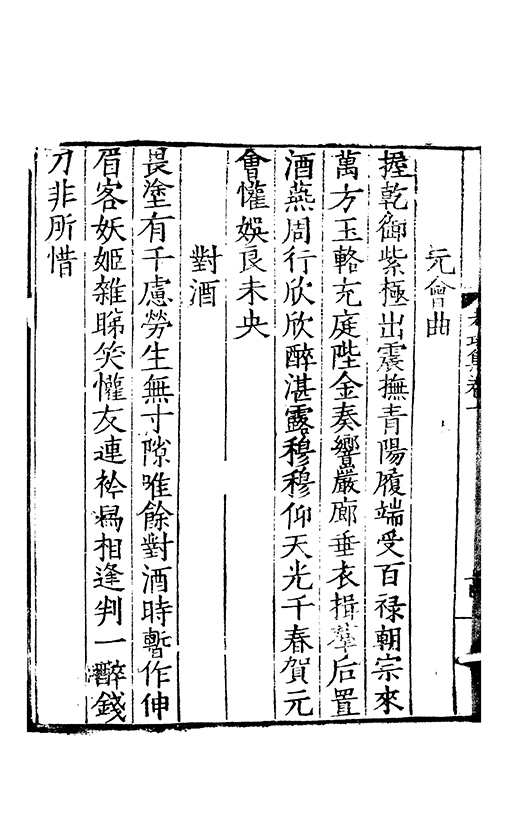 元會曲
握乾御紫極出震撫青陽履端受百祿朝宗來
萬方玉輅充庭陛金奏響嚴廊垂衣揖羣后置
酒燕周行欣欣醉湛露穆穆仰天光千春賀元
會懽娛良未央
對酒
畏塗有千慮勞生無寸隙唯餘對酒時暫作伸
眉客妖姬雜睇笑懽友連衿舄相逢判一醉錢
刀非所惜